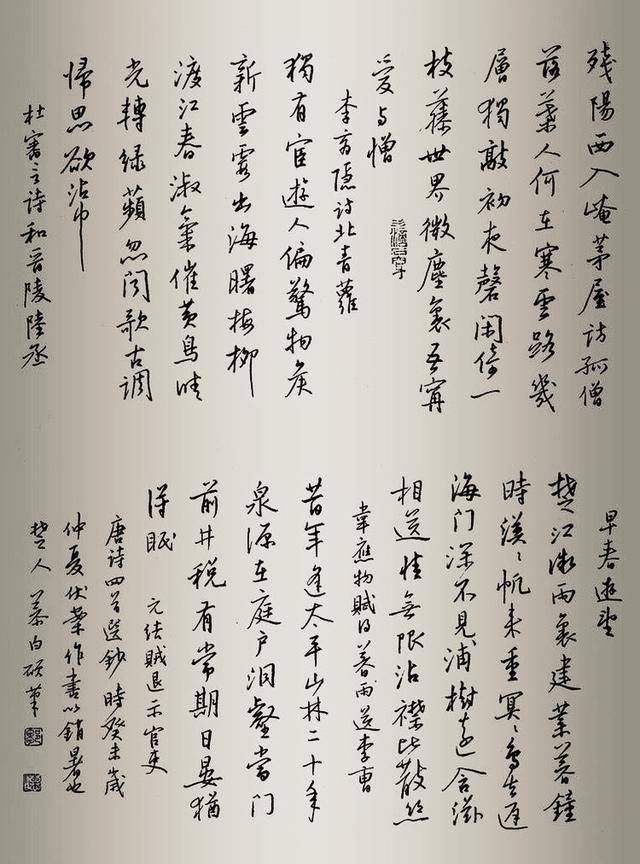 殘陽西入崦茅屋訪孤僧
落葉人何在寒雲路幾
層獨敲初夜磬閑倚一
枝藤世界微塵裏吾寧
愛与憎
李商隱詩北青蘿
獨有宦遊人偏驚物候
新雲霞出海曙梅柳
渡江春淑氣催黃鳥晴
光轉綠蘋忽聞歌古調
歸思欲沾巾
杜審言詩和晉陵陸丞
早春遊望
楚江微雨裏建業暮鐘
時漠〻帆來重冥〻鳥去遲
海門深不見浦樹遠含滋
相送情無限沾襟比散絲
韋應物賦得暮雨送李曹
昔年逢太平山林二十年
泉源在庭戶洞壑當門
前井稅有常期日晏猶
得眠 元結賊退示官吏
唐詩四首選鈔 時癸未歲
仲夏伏案作書以銷暑也
楚人 慕白 筆